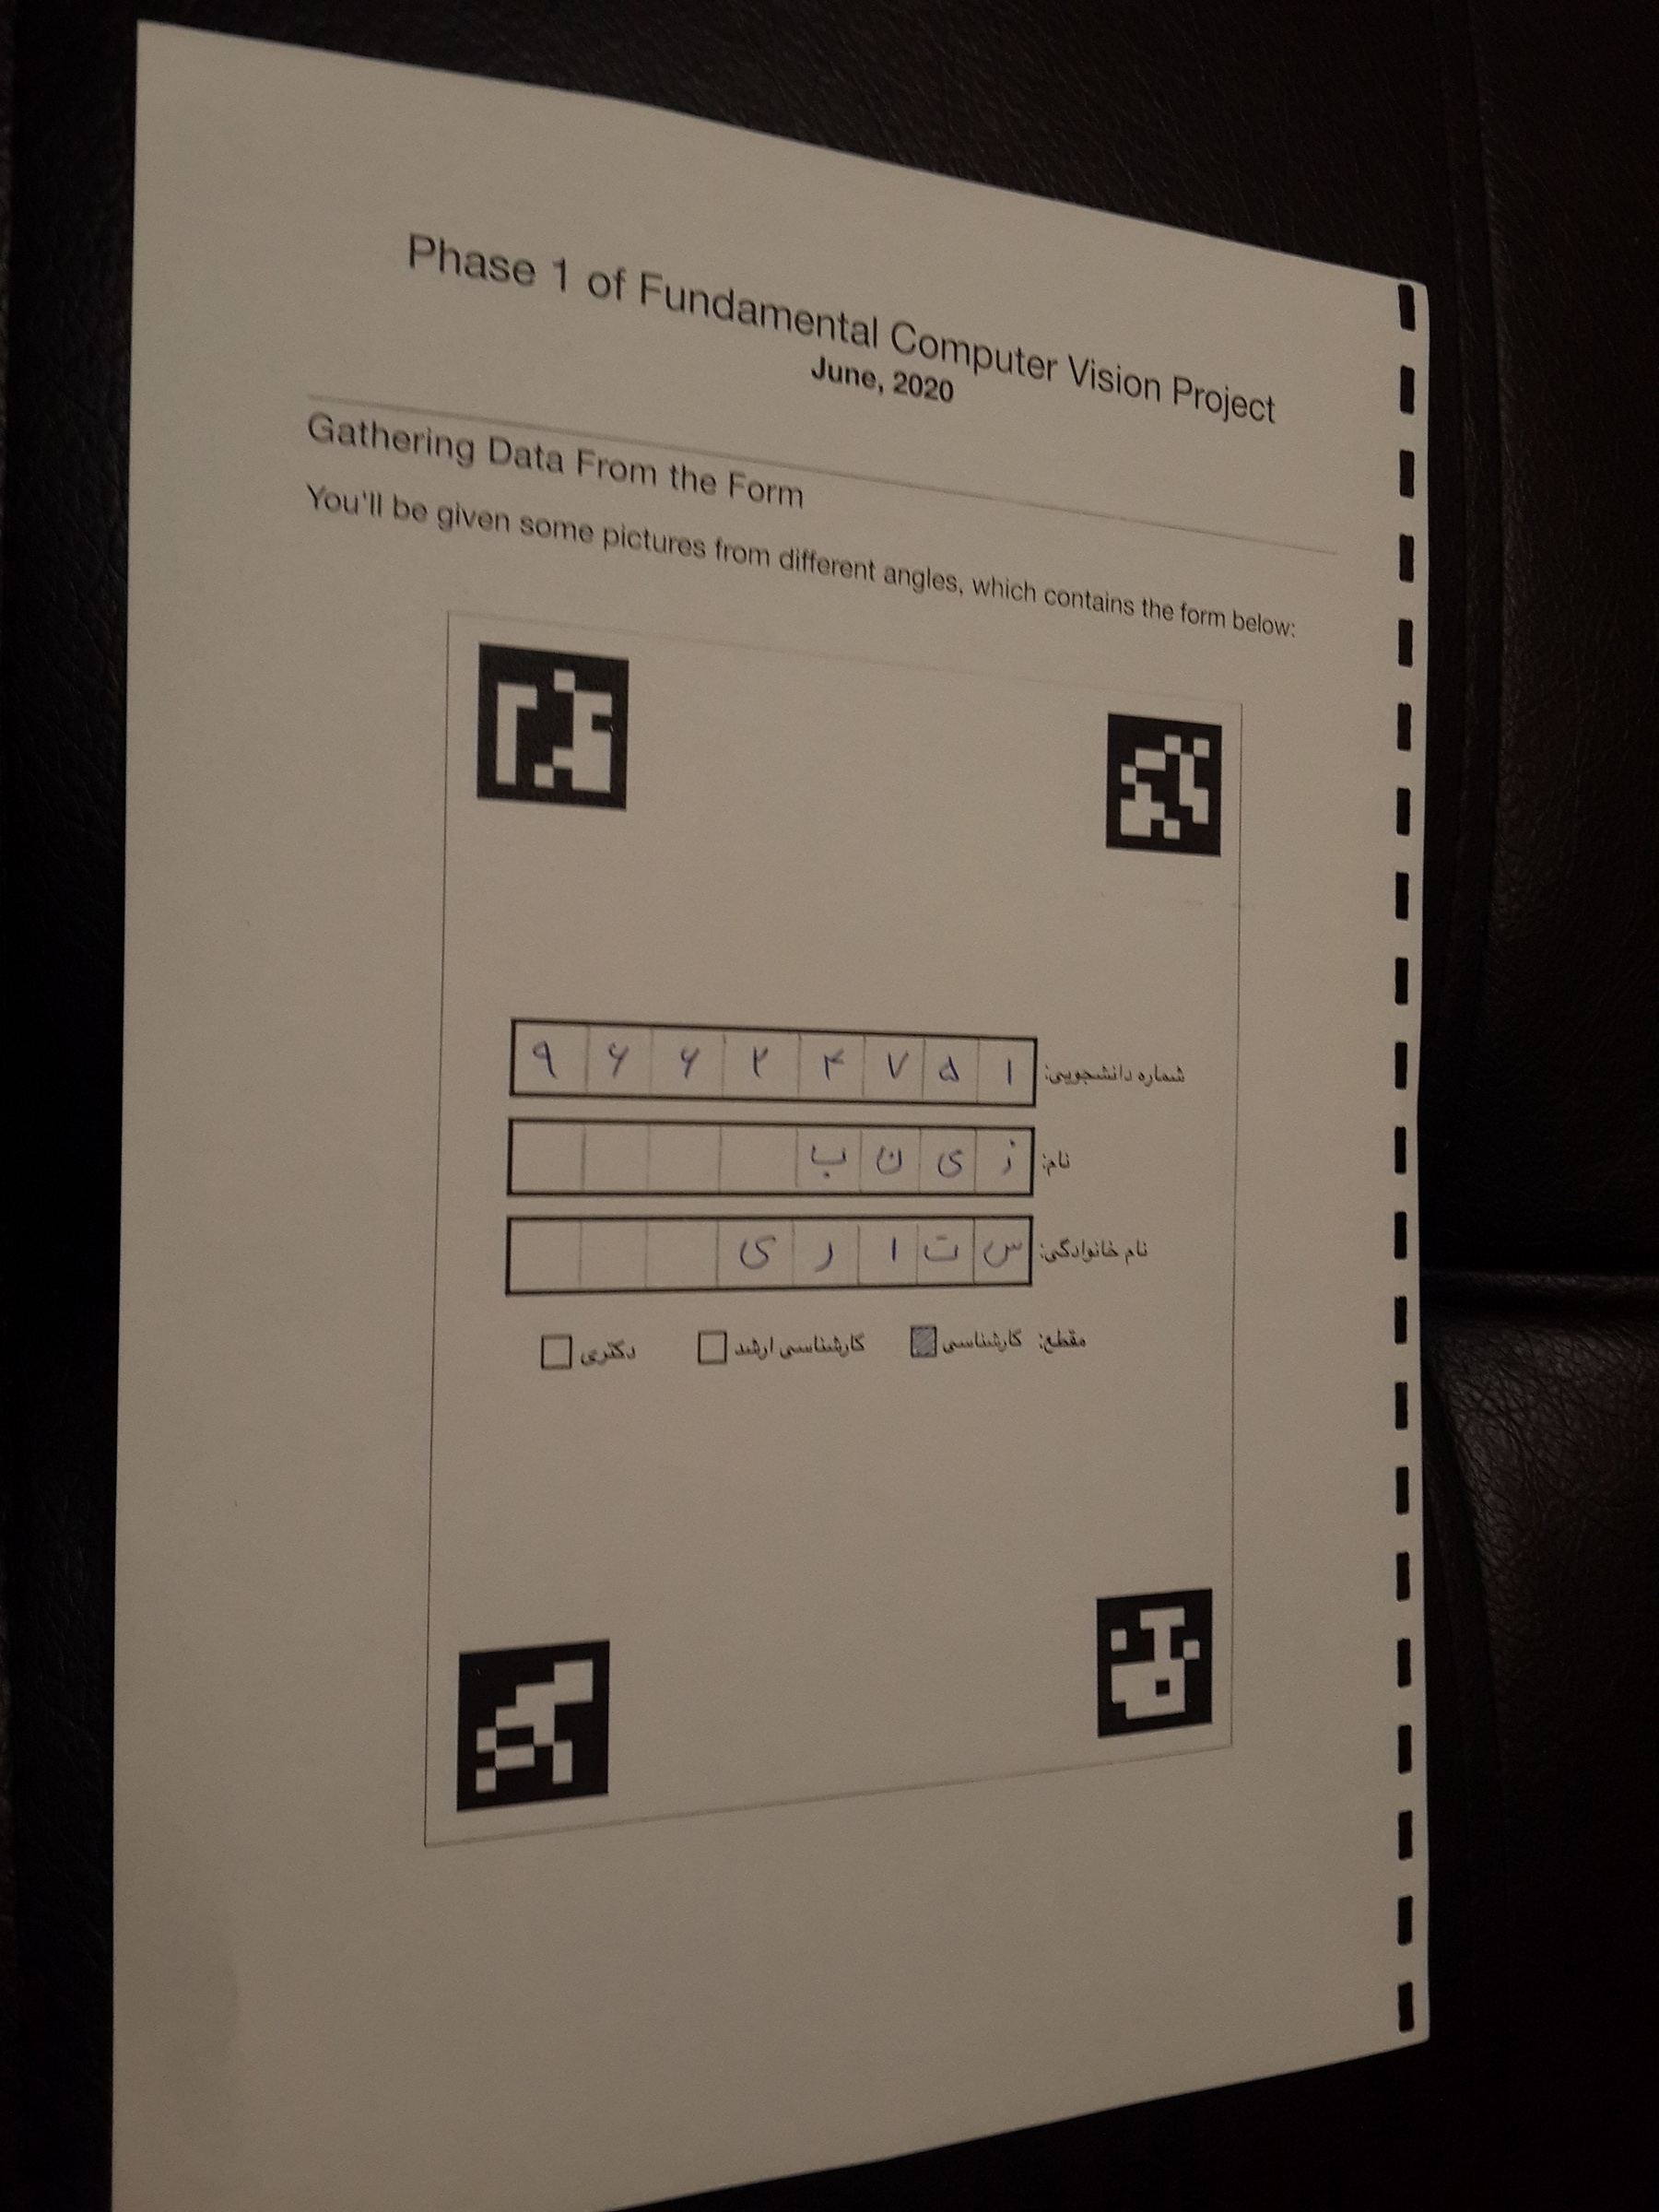 Phase 1 of Fundamental Computer Vision Project
June, 2020
Gathering Data From the Form
You'll be given some pictures from different angles, which contains the form below:
شماره دانشجویی: ۹۶۶۲۴۷۵۱
نام: ز ی ن ب
نام خانوادگی: س ت ا ر ی
مقطع: کارشناسی کارشناسی ارشد دکتری